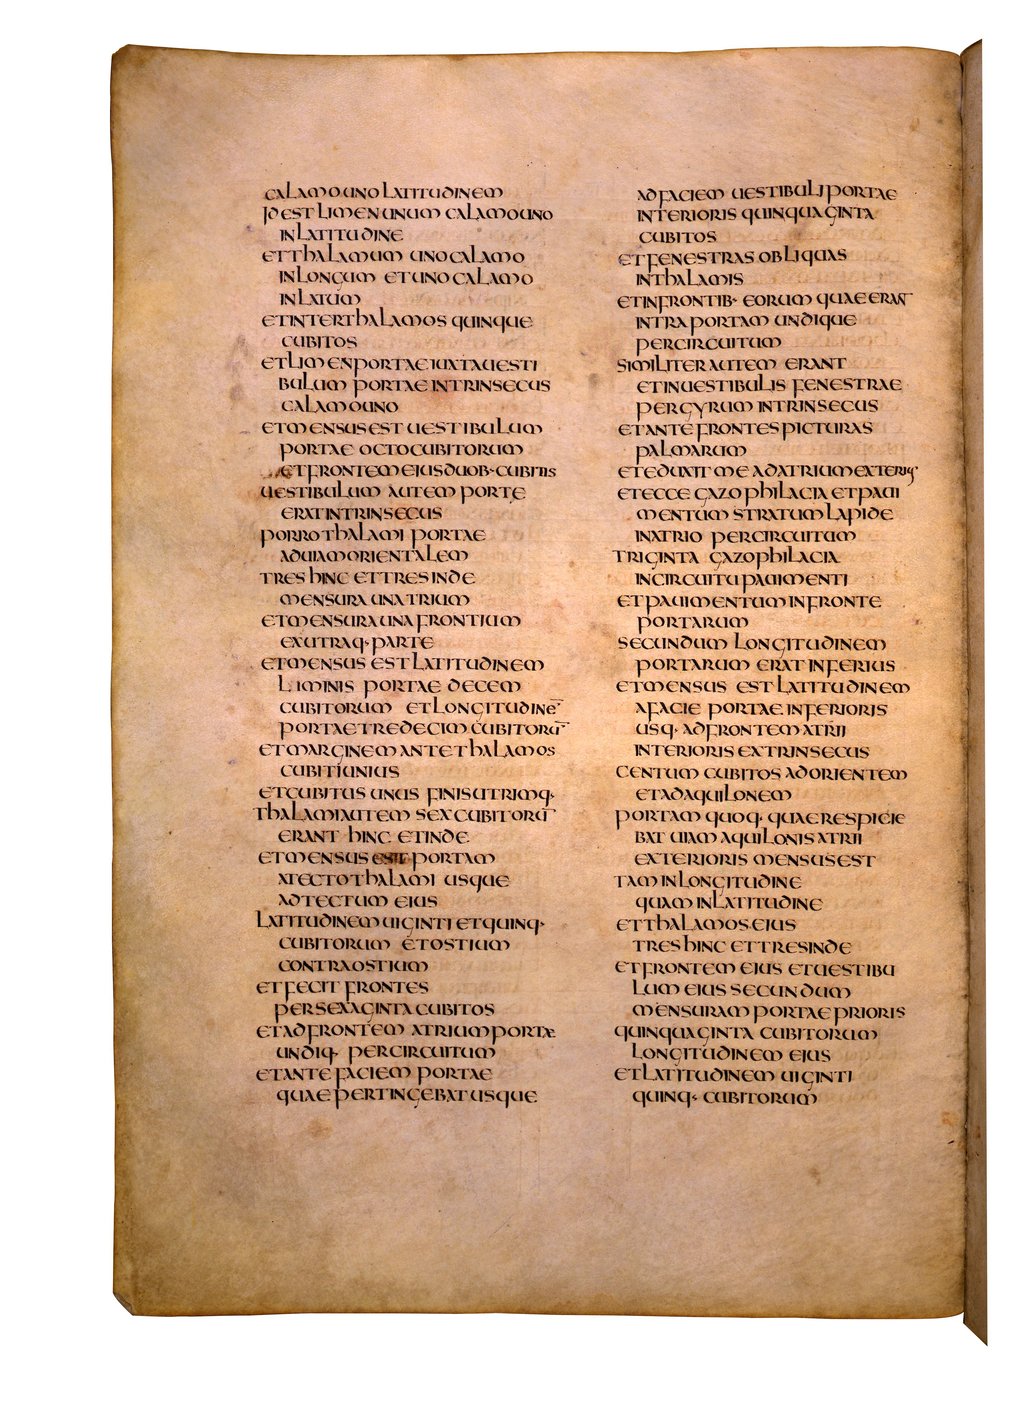 CALAMO UNO LATITUDINEM
ID EST LIMEN UNUM CALAMO UNO
IN LATITUDINE
ET THALAMUM UNO CALAMO
IN LONGUM ET UNO CALAMO
IN LATUM
ET INTER THALAMOS QUINQUE
CUBITOS
ET LIMEN PORTAE IUXTA UESTI
BULUM PORTAE INTRINSECUS
CALAMO UNO
ET MENSUS EST UESTIBULUM
PORTAE OCTO CUBITORUM
ET FRONTEM EIUS DUOB· CUBITIS
UESTIBULUM AUTEM PORTE
ERAT INTRINSECUS
PORRO THALAMI PORTAE
AD UIAM ORIENTALEM
TRES HINC ET TRES INDE
MENSURA UNA TRIUM
ET MENSURA UNA FRONTIUM
EX UTRAQ· PARTE
ET MENSUS EST LATITUDINEM
LIMINIS PORTAE DECEM
CUBITORUM ET LONGITUDINE‾
PORTAE TREDECIM CUBITORU‾
ET MARGINEM ANTE THALAMOS
CUBITI UNIUS
ET CUBITUS UNUS FINIS UTRIMQ·
THALAMI AUTEM SEX CUBITORU‾
ERANT HINC ET INDE
ET MENSUS EST PORTAM
A TECTO THALAMI USQUE
AD TECTUM EIUS
LATITUDINEM UIGINTI ET QUINQ·
CUBITORUM ET OSTIUM
CONTRA OSTIUM
ET FECIT FRONTES
PER SEXAGINTA CUBITOS
ET AD FRONTEM ATRIUM PORTAE
UNDIQ· PER CIRCUITUM
ET ANTE FACIEM PORTAE
QUAE PERTINGEBAT USQUE
AD FACIEM UESTIBULI PORTAE
INTERIORIS QUINQUAGINTA
CUBITOS
ET FENESTRAS OBLIQUAS
IN THALAMIS
ET IN FRONTIB· EORUM QUAE ERANT
INTRA PORTAM UNDIQUE
PER CIRCUITUM
SIMILITER AUTEM ERANT
ET IN UESTIBULIS FENESTRAE
PER GYRUM INTRINSECUS
ET ANTE FRONTES PICTURAS
PALMARUM
ET EDUXIT ME AD ATRIUM EXTERIUS
ET ECCE GAZOPHILACIA ET PAUI
MENTUM STRATUM LAPIDE
IN ATRIO PER CIRCUITUM
TRIGINTA GAZOPHILACIA
IN CIRCUITU PAUIMENTI
ET PAUIMENTUM IN FRONTE
PORTARUM
SECUNDUM LONGITUDINEM
PORTARUM ERAT INFERIUS
ET MENSUS EST LATITUDINEM
A FACIE PORTAE INFERIORIS
USQ· AD FRONTEM ATRII
INTERIORIS EXTRINSECUS
CENTUM CUBITOS AD ORIENTEM
ET AD AQUILONEM
PORTAM QUOQ· QUAE RESPICIE
BAT UIAM AQUILONIS ATRII
EXTERIORIS MENSUS EST
TAM IN LONGITUDINE
QUAM IN LATITUDINE
ET THALAMOS EIUS
TRES HINC ET TRES INDE
ET FRONTEM EIUS ET UESTIBU
LUM EIUS SECUNDUM
MENSURAM PORTAE PRIORIS
QUINQUAGINTA CUBITORUM
LONGITUDINEM EIUS
ET LATITUDINEM UIGINTI
QUINQ· CUBITORUM